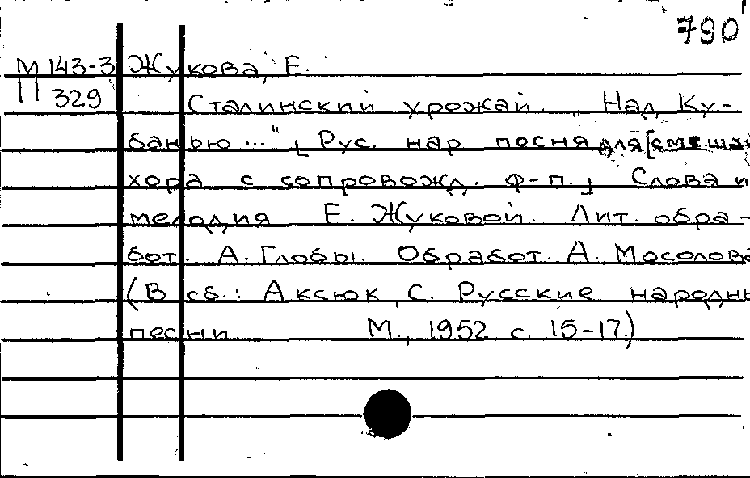 790
М 143-3 Жукова, Е.
11 329 Сталинский урожай. „Над Ку-
банью..." [Рус. нар песня для [смеш
хора с сопровожд. ф-п.] Слова и
мелодия Е. Жуковой. Лит. обра-
бот. А. Глобы. Обработ. А. Мосолова
(В сб.: Аксюк, С. Русские народны
песни М., 1952 с. 15-17)